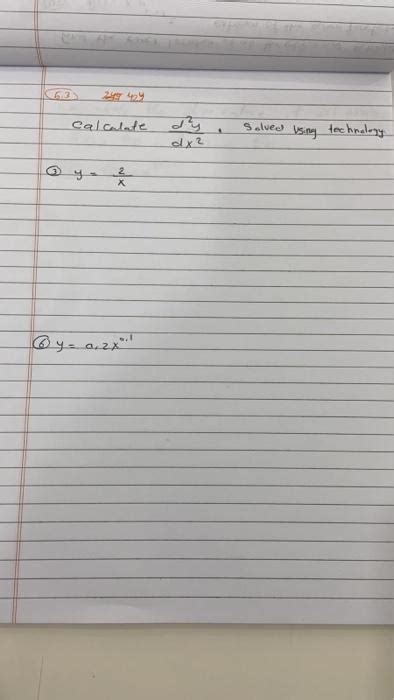 6.3
Calculate d²y/dx² . Solved Using technology
③ y = 2/x
⑥ y = 0.2x^0.1